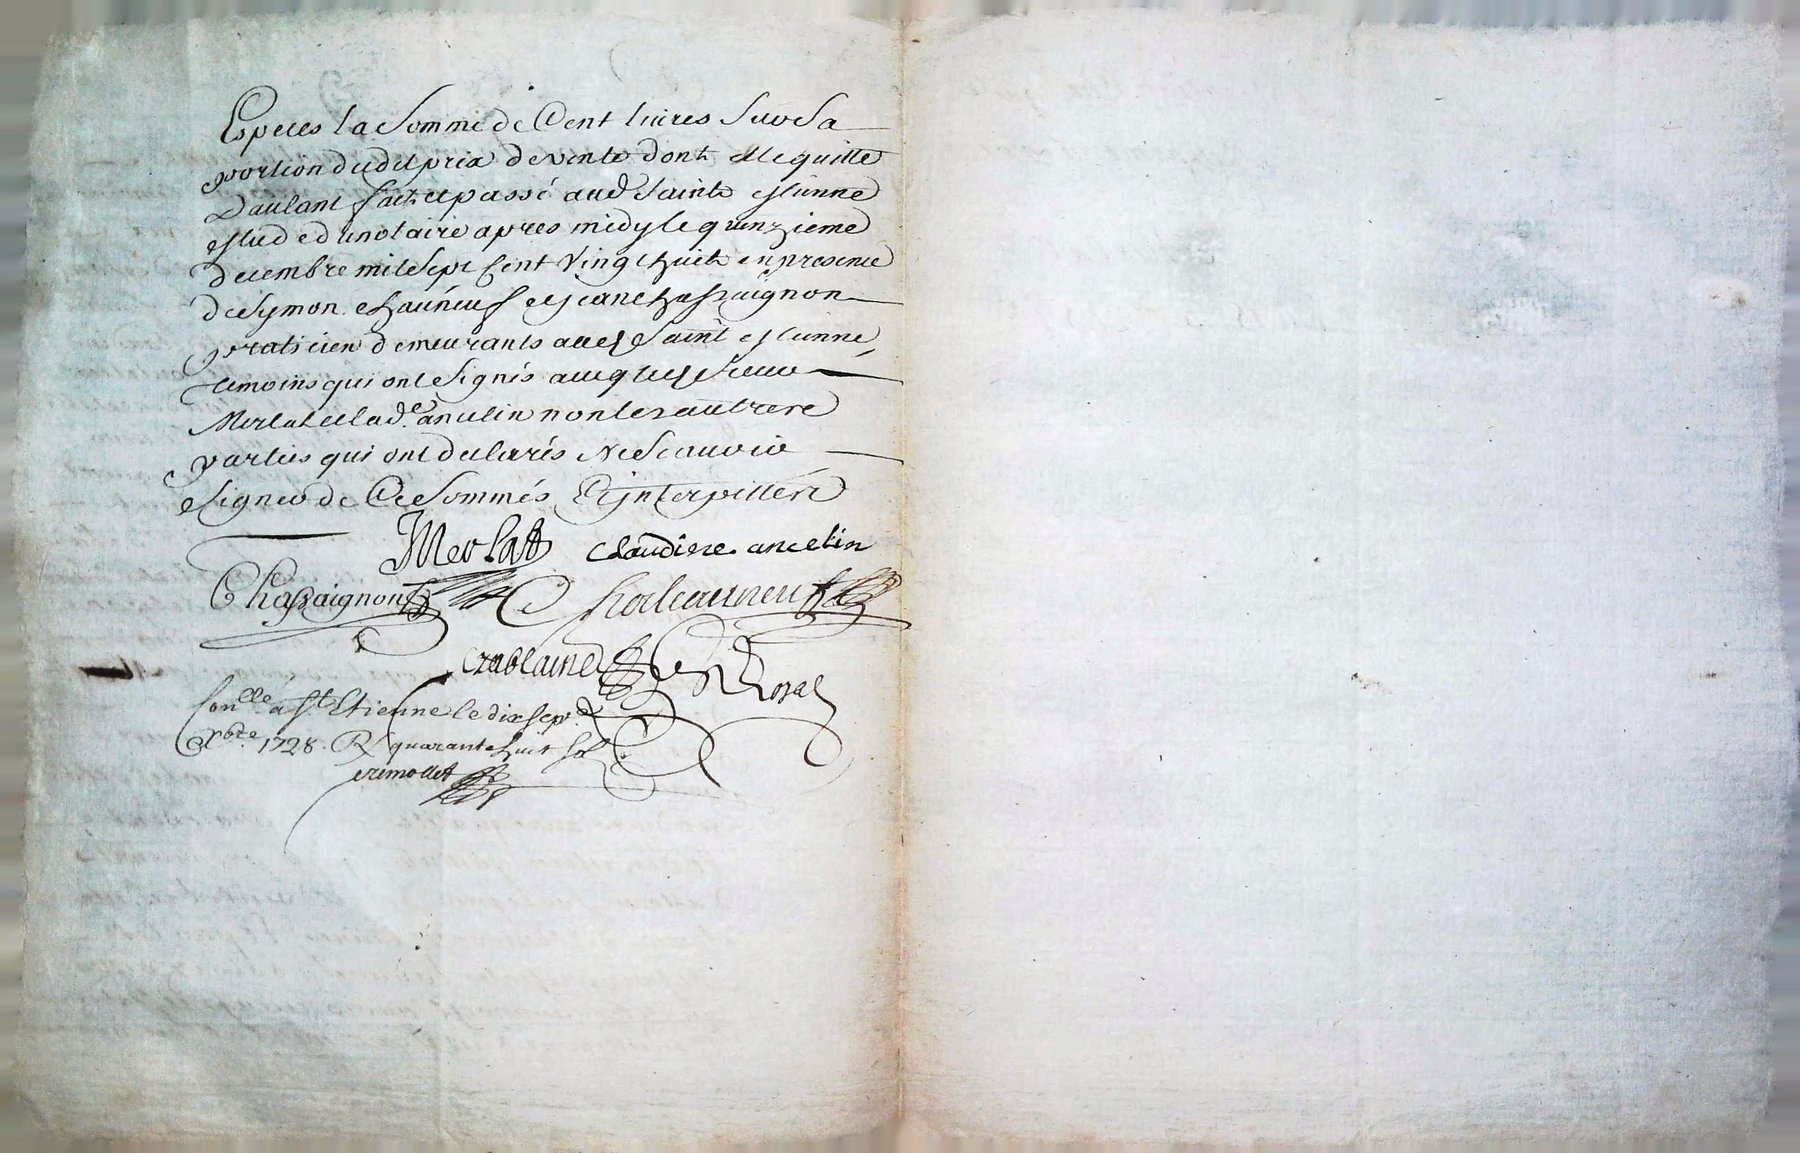 Especes la Somme de Cent livres Sur Sa
portion dudit prix de vente dont elle quitte
D'autant fait et passé aud Saint estienne
estude du notaire apres midy le quinzieme
decembre mil Sept Cent Vingt huict en presence
de Symon et Jean Chassaignon
praticien demeurants aud Saint estienne
temoins qui ont Signés avecq led Sieur
Merlat et lad.e ancelin non les autres
parties qui ont declarés Ne Scavoir
Signer de Ce Sommés Et interpellés
Merlat Claudine ancelin
Chassaignon
Royal
Con.lle a St. Etienne le dix sept
xbre 1728. R quarante huit sol